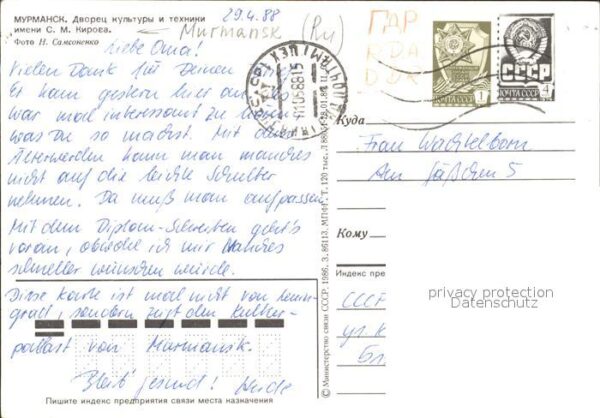 МУРМАНСК. Дворец культуры и техники
имени С. М. Кирова.
Фото Н. Самсоненко
29.4.88
Murmansk (Ru)
Liebe Oma!
Vielen Dank für Deinen
Er kam gestern hier an
war mal interessant zu
was Du so machst. Mit dem
Älterwerden kann man manches
nicht auf die leichte Schulter
nehmen. Da muß man aufpassen.
Mit dem Diplom-Schreiben geht's
voran, obwohl ich mir manches
schneller wünschen würde.
Diese Karte ist mal nicht von Lenin-
grad, sondern zeigt den Kultur-
pallast von Murmansk.
Bleib' gesund!
Пишите индекс предприятия связи места назначения
© Министерство связи СССР, 1986. З. 86113. МПФГ. Т. 120 тыс.
ГДР
RDA
DDR
ПОЧТА СССР 1
СССР
ПОЧТА 4
Куда
Frau Wachtelborn
Am Gäßchen 5
Кому
Индекс пре
privacy protection
Datenschutz
СССР
ул. К
Бл